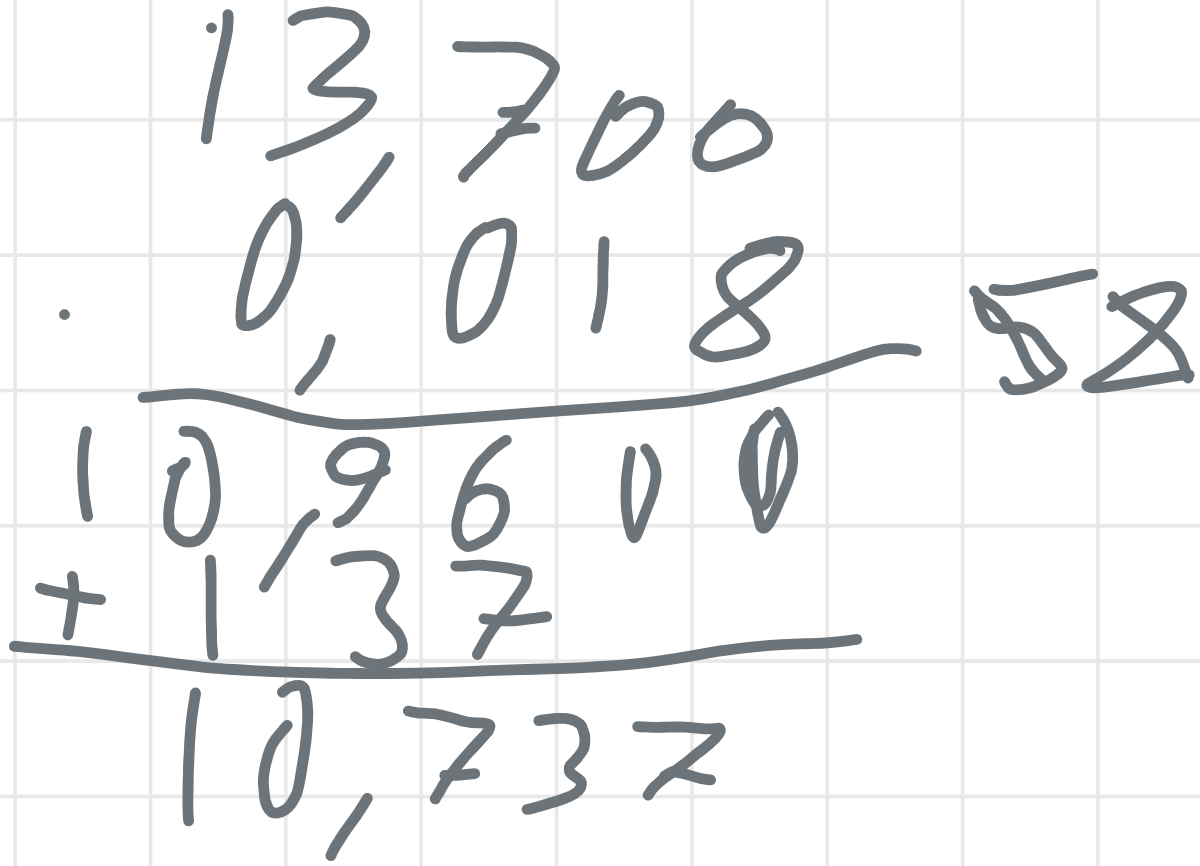 13,700
· 0,018 58
10,9600
+ 137
10,737